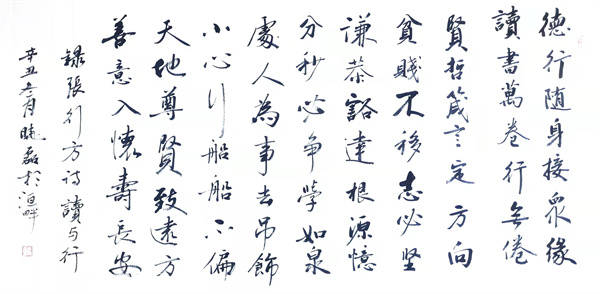 德行随身接眾缘
讀書萬卷行無倦
賢哲箴言定方向
貧賤不移志必坚
谦恭豁達根源憶
分秒必争學如泉
處人為事去吊飾
小心行船船不偏
天地尊賢致遠方
善意入懷壽長安
録張行方诗讀与行
辛丑月曉磊於洹畔